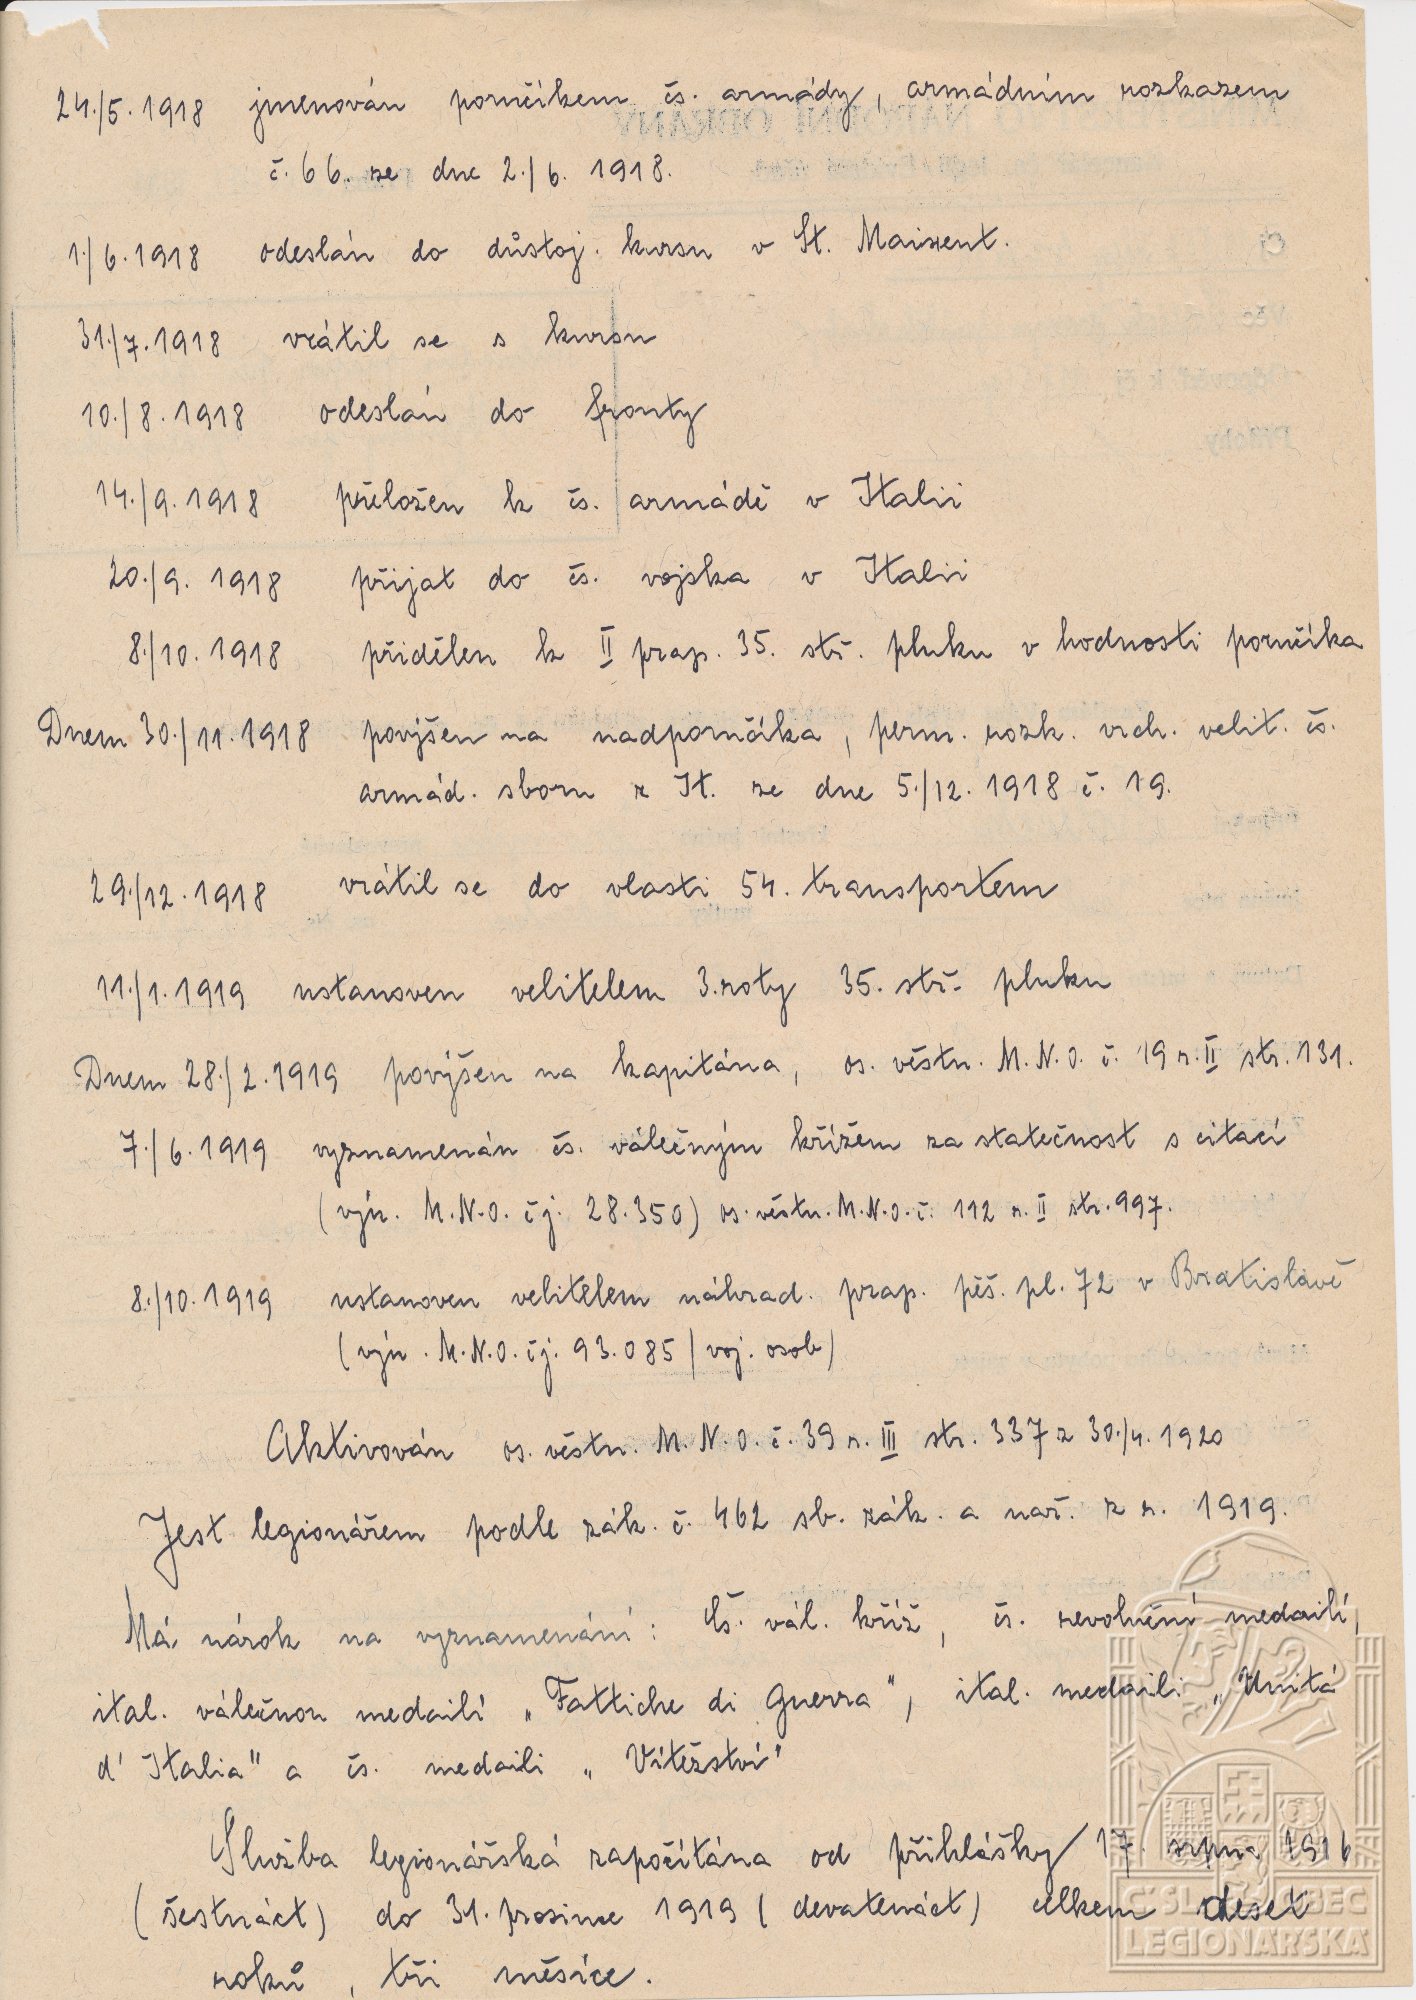 24./5. 1918 jmenován poručíkem čs. armády, armádním rozkazem
č. 66. ze dne 2./6. 1918.
1./6. 1918 odeslán do důstoj. kursu v St. Maixent.
31./7. 1918 vrátil se s kursu
10./8. 1918 odeslán do fronty
14./9. 1918 přeložen k čs. armádě v Italii
20./9. 1918 přijat do čs. vojska v Italii
8./10. 1918 přidělen k II prap. 35. stř. pluku v hodnosti poručíka
Dnem 30./11. 1918 povýšen na nadporučíka, perm. rozk. vrch. velit. čs.
armád. sboru z It. ze dne 5./12. 1918 č. 19.
29./12. 1918 vrátil se do vlasti 54. transportem
11./1. 1919 ustanoven velitelem 3. roty 35. stř. pluku
Dnem 28./2. 1919 povýšen na kapitána, os. věstn. M.N.O. č. 19 r. II str. 131.
7./6. 1919 vyznamenán čs. válečným křížem za statečnost s citací
(výn. M.N.O. čj. 28.350) os. věstn. M.N.O. č. 112 r. II str. 997.
8./10. 1919 ustanoven velitelem náhrad. prap. pěš. pl. 72 v Bratislavě
(výn. M.N.O. čj. 93.085/voj. osob)
Aktivován os. věstn. M.N.O. č. 39 r. III str. 337 z 30./4. 1920
Jest legionářem podle zák. č. 462 sb. zák. a nař. z r. 1919.
Má nárok na vyznamenání: Čs. vál. kříž, čs. revoluční medaili,
ital. válečnou medaili „Fattiche di Guerra", ital. medaili „Unitá
d' Italia" a čs. medaili „Vítězství"
Služba legionářská započítána od přihlášky 17. srpna 1916
(šestnáct) do 31. prosince 1919 (devatenáct) celkem deset
roků, tři měsíce.
ČSL. OBEC
LEGIONÁŘSKÁ